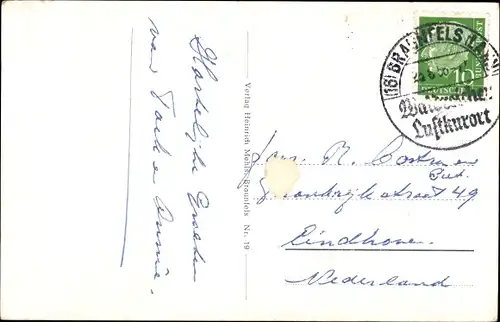 Hartelijke Groeten
van Tante Annie.
Verlag Heinrich Mehl, Braunfels Nr. 19
(16) BRAUNFELS (LAHN)
Luftkurort
10
DEUTSCHE BUNDESPOST
Fam. R.
49
Eindhoven
Nederland